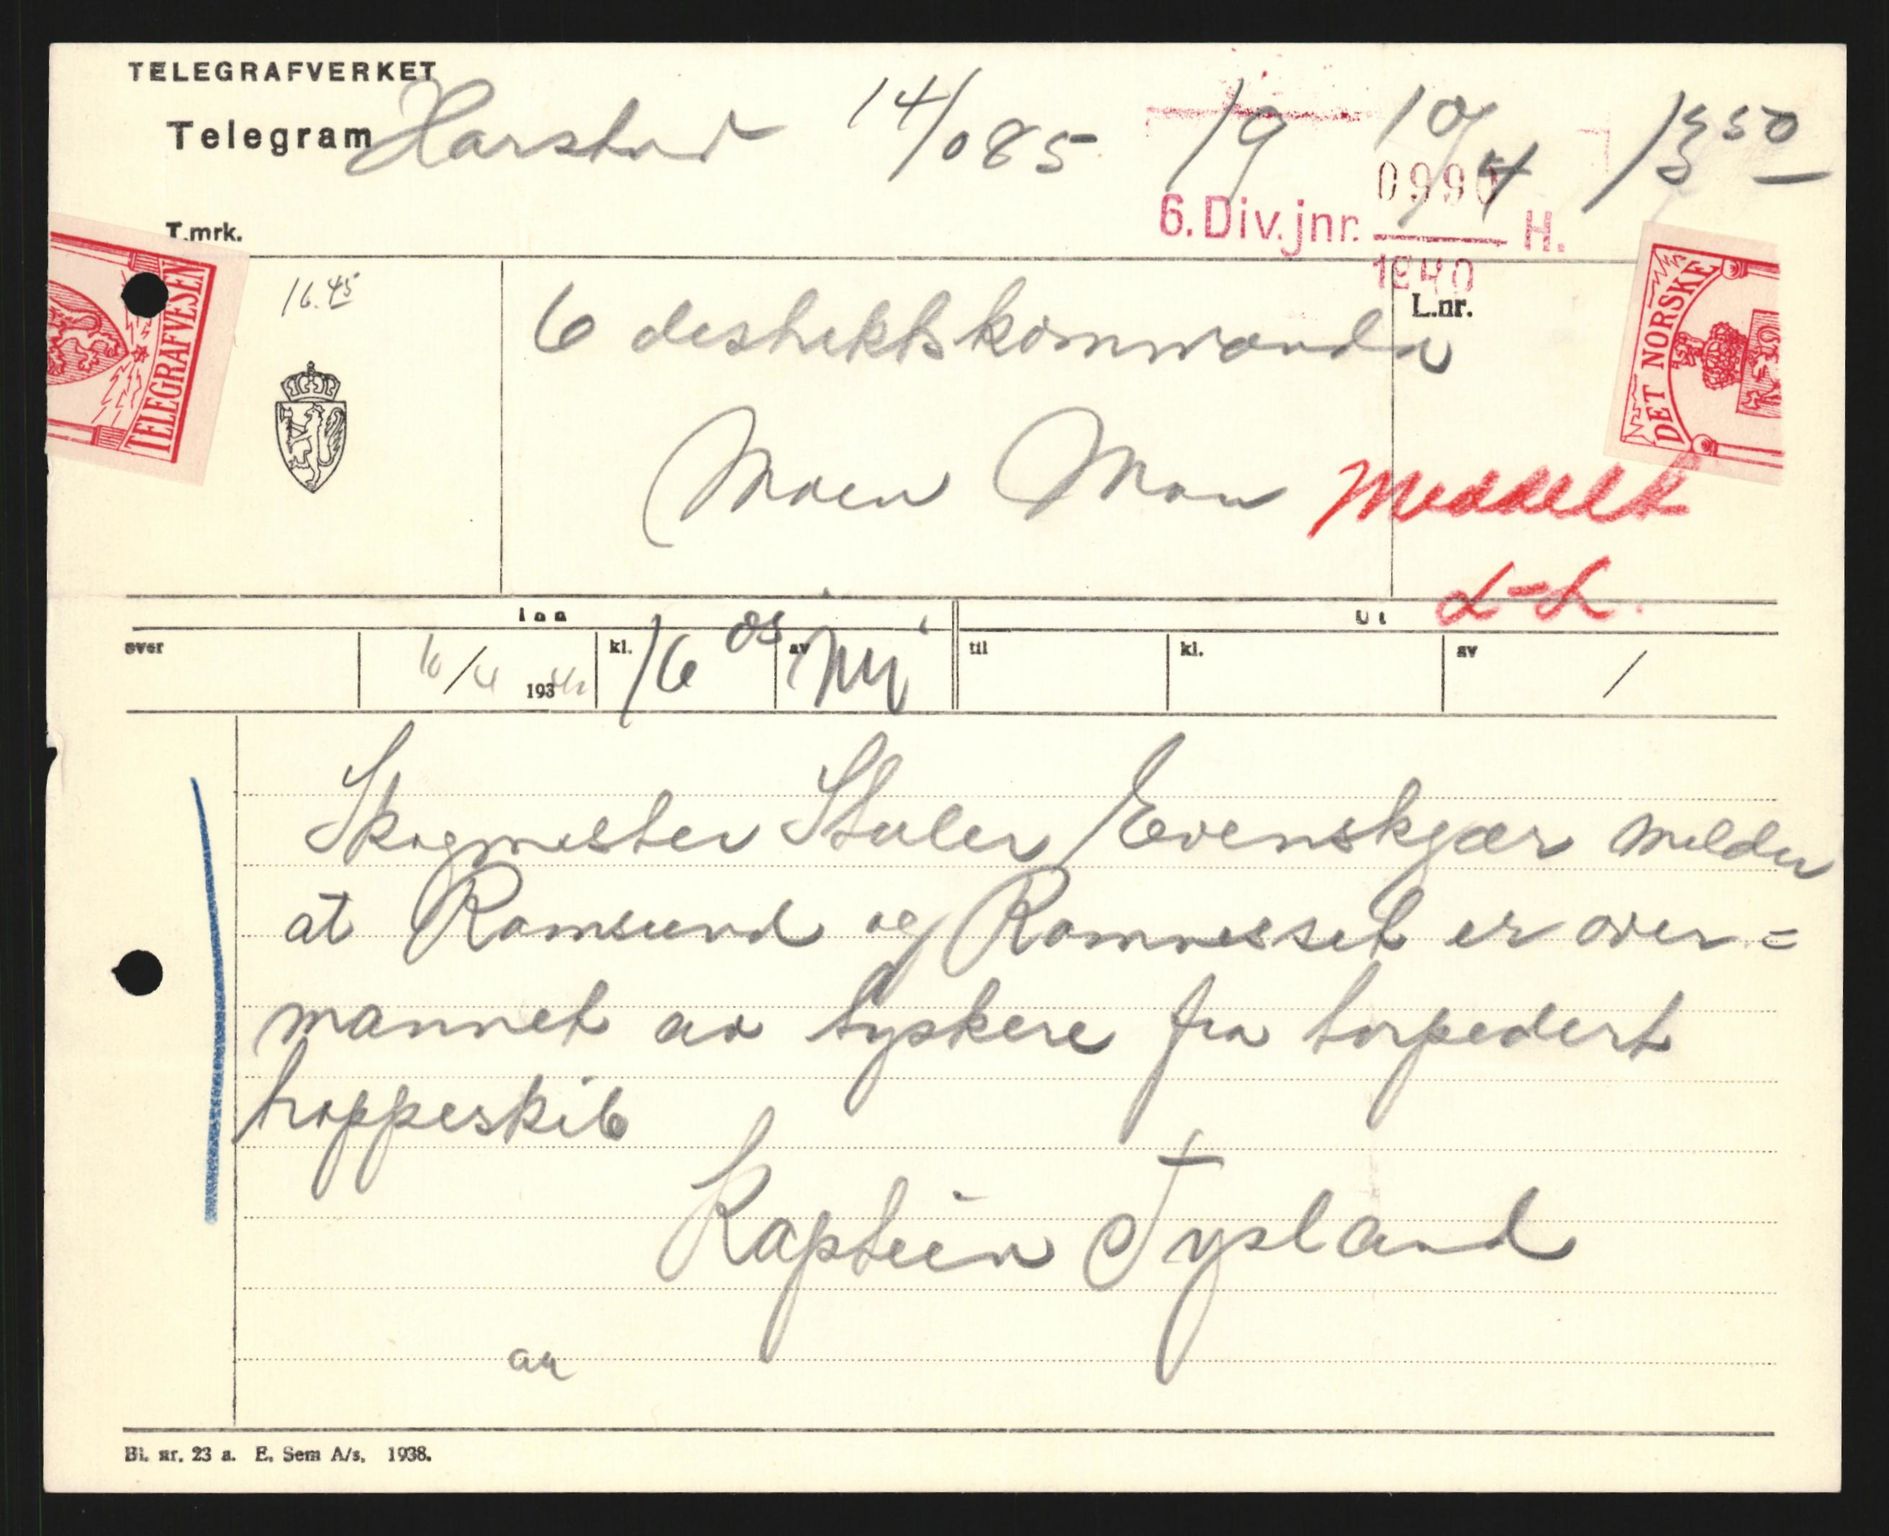 TELEGRAFVERKET
Telegram
Harstad 14/085 19 10/4 1550
T.mrk.
6. Div. jnr. 0990 H.
1940
16.45
L.nr.
TELEGRAFVESEN
DET NORSKE
6 destriktskommando
Moen Mon
Meddelt
Inn
Ut
over
10/4 1940
kl. 16 05
av
til
kl.
av
Skogmester Staler Evenskjær melder
at Ramsund og Ramnesset er over=
mannet av tyskere fra torpedert
troppeskib
Kaptein Tysland
Bl. nr. 23 a. E. Sem A/s. 1938.